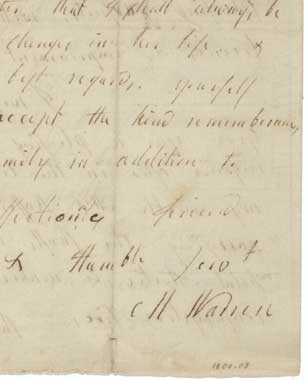 that I shall always be
changes in her life &
best regards, yourself
accept the kind remembrance
amily in addition to
ffectionte friend
& Humble Servt
C H Warren